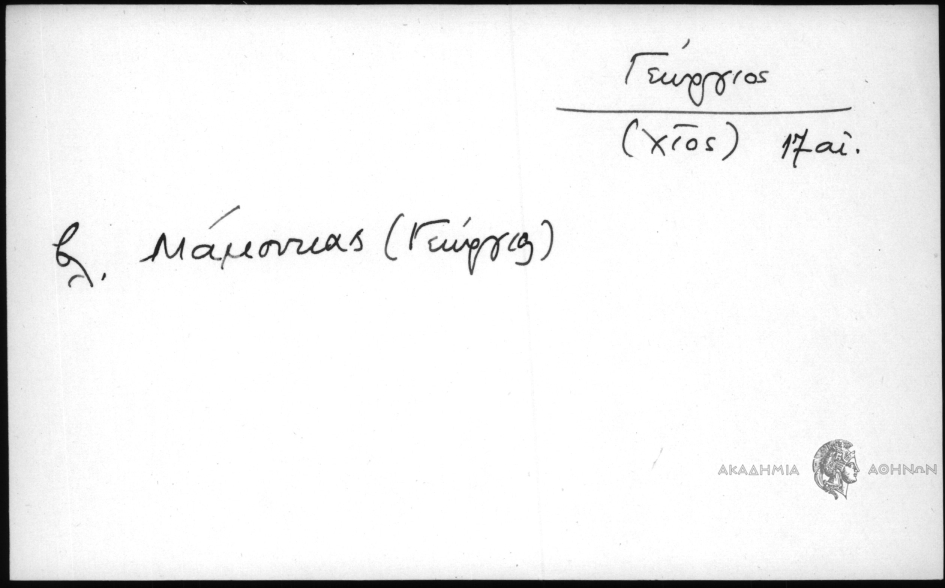 Γεώργιος
(Χῖος) 17 αἰ.
βλ. Μάμουκας (Γεώργιος)
ΑΚΑΔΗΜΙΑ ΑΘΗΝΩΝ